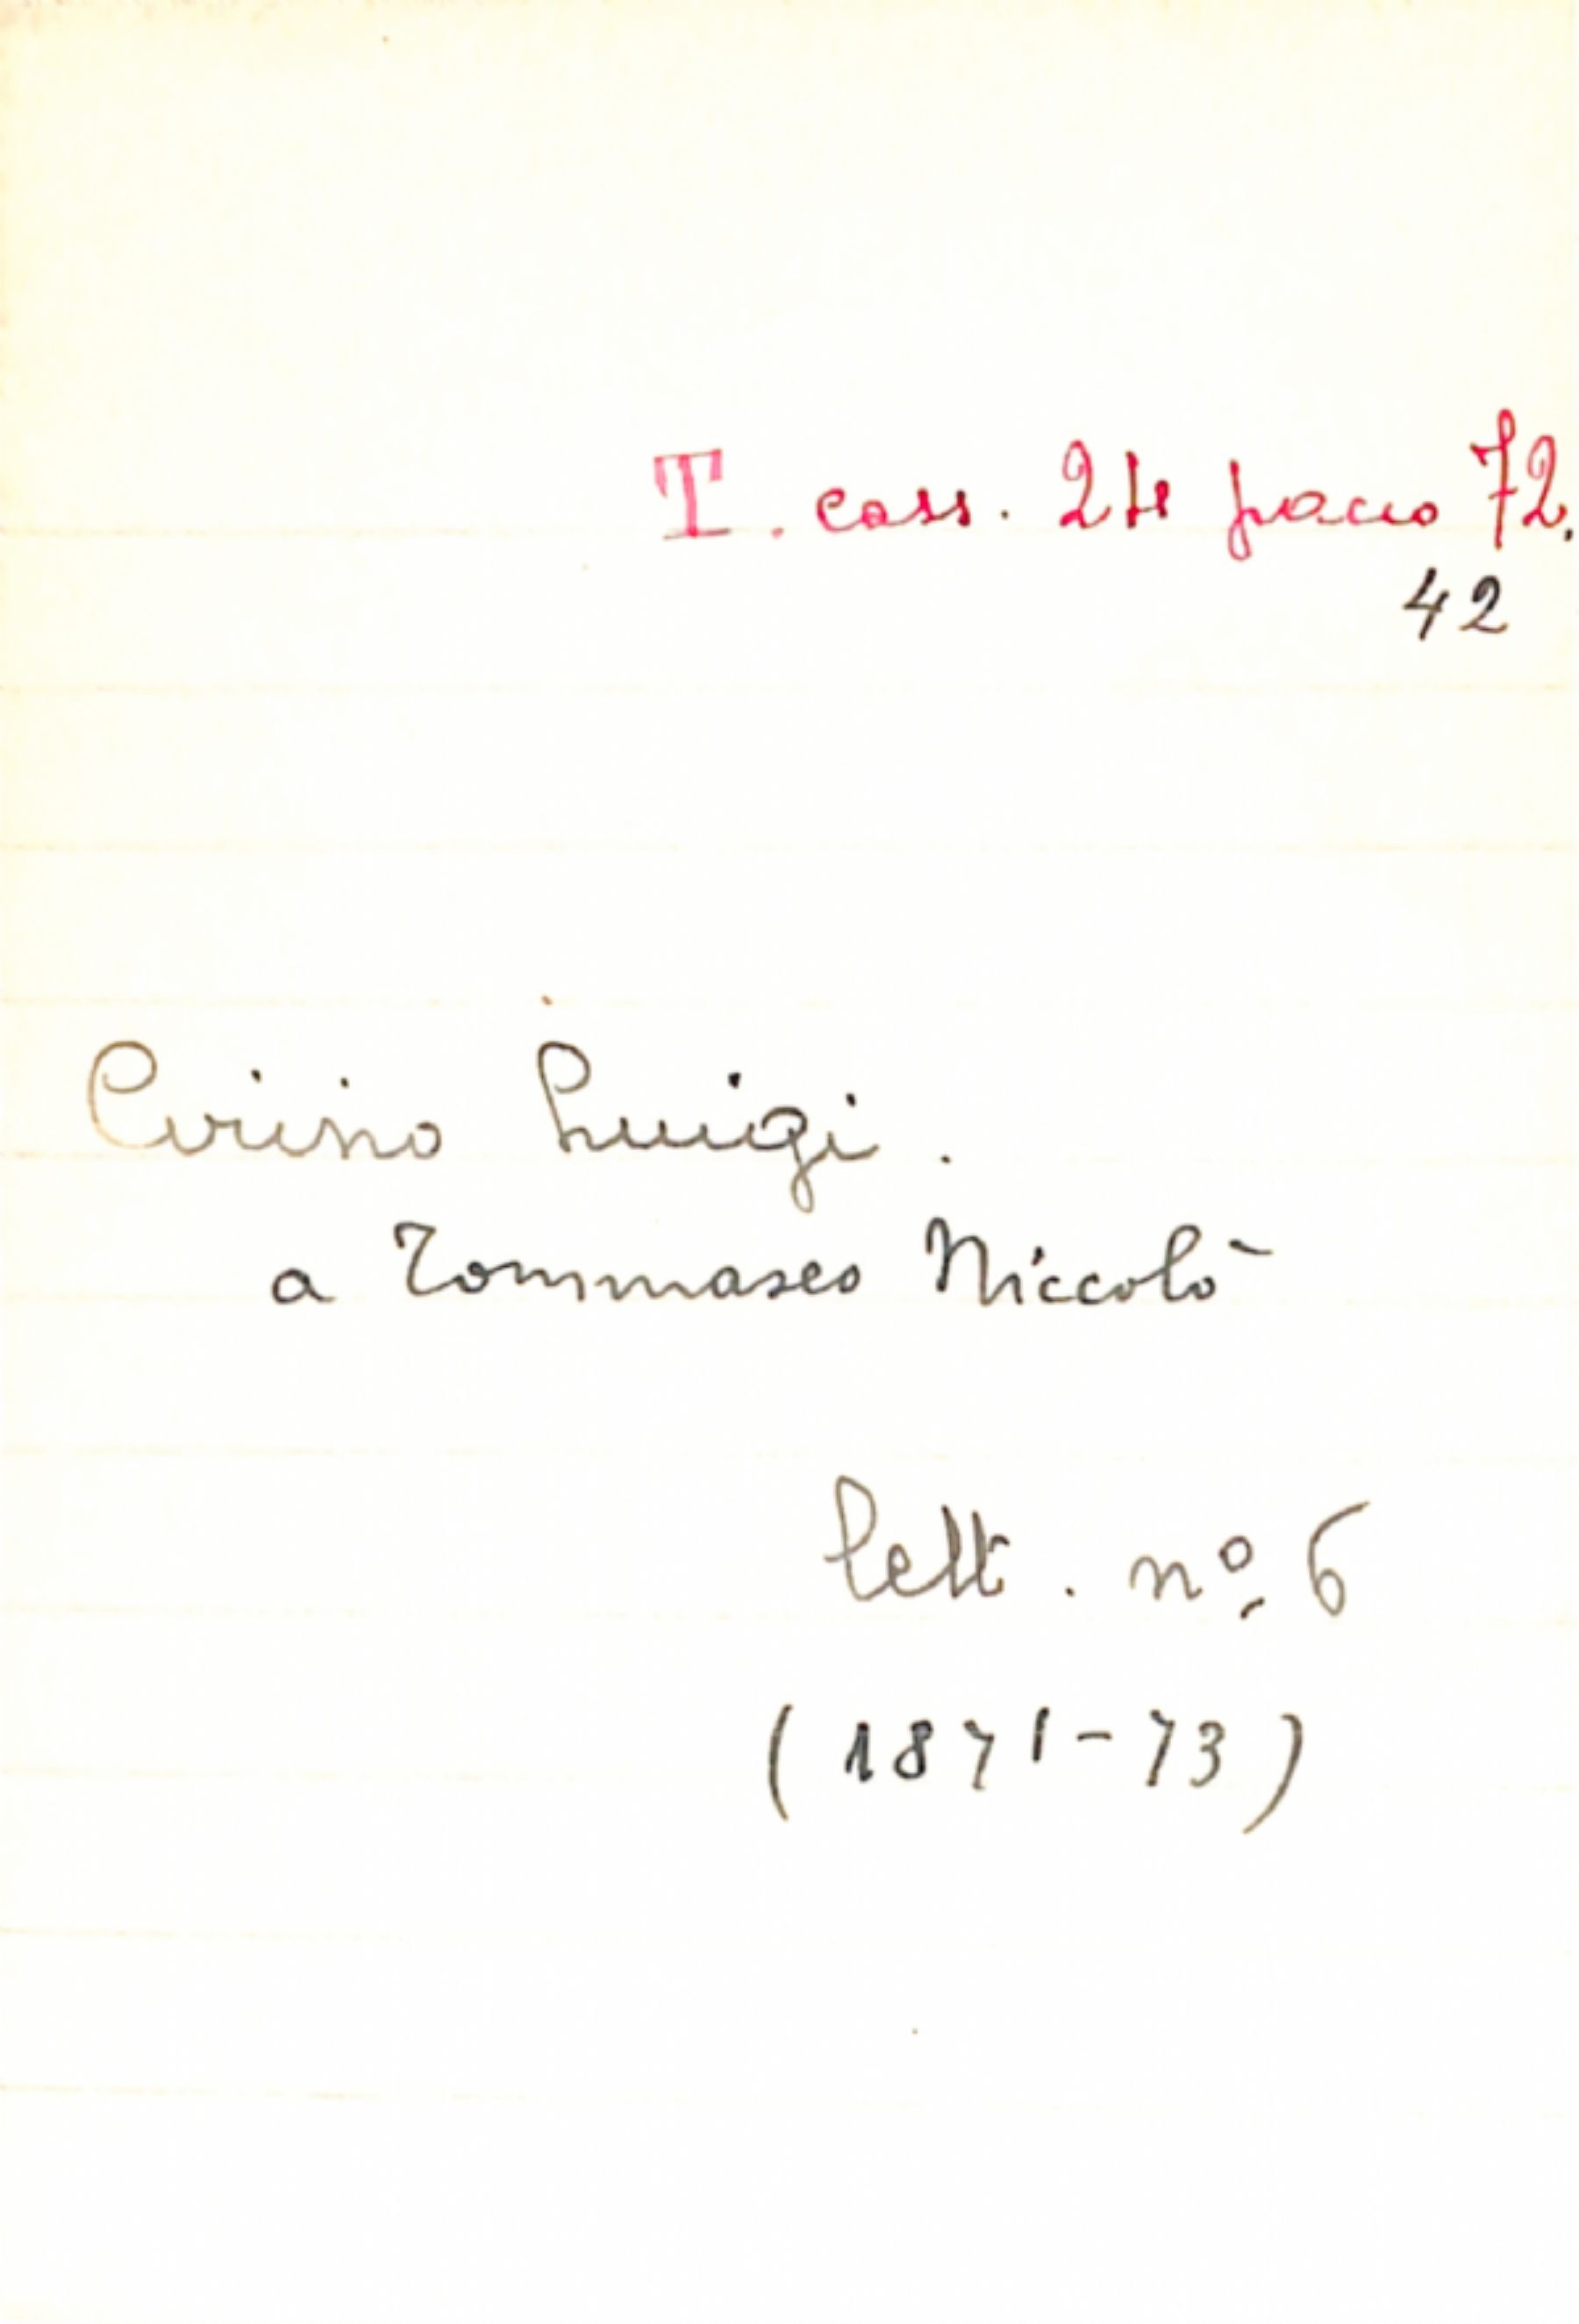 T. cass. 24 pacco 72.
42
Cirino Luigi.
a Tommaseo Niccolò
lett. nº 6
(1871-73)